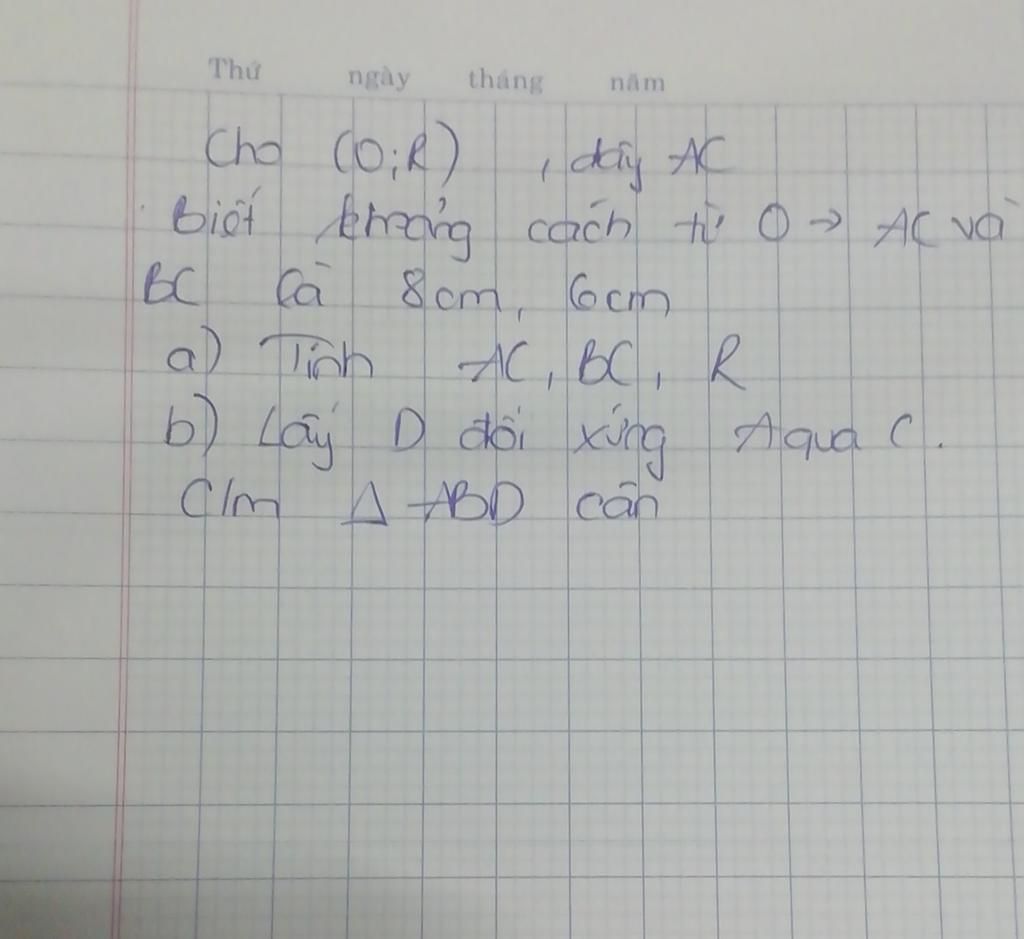 Thứ ngày tháng năm
Cho (O;R) , dây AC
Biết khoảng cách từ O → AC và
BC là 8cm, 6cm
a) Tính AC, BC, R
b) Lấy D đối xứng A qua C.
C/m Δ ABD cân